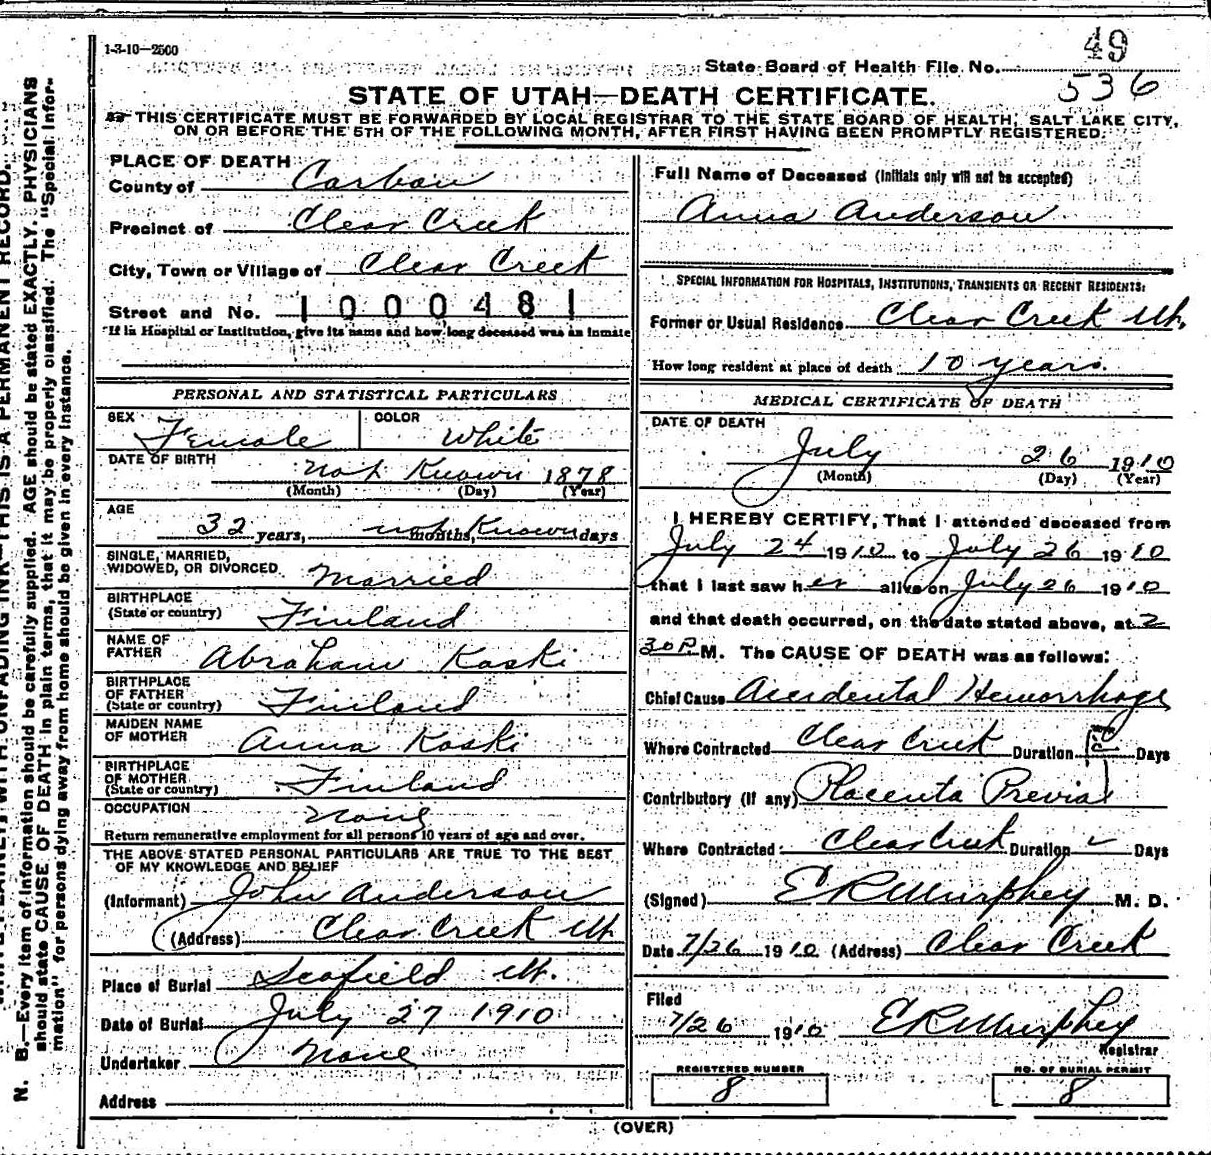 1-3-10—2500
49
State Board of Health File No.
536
STATE OF UTAH—DEATH CERTIFICATE.
THIS CERTIFICATE MUST BE FORWARDED BY LOCAL REGISTRAR TO THE STATE BOARD OF HEALTH, SALT LAKE CITY,
ON OR BEFORE THE 5TH OF THE FOLLOWING MONTH, AFTER FIRST HAVING BEEN PROMPTLY REGISTERED.
PLACE OF DEATH
County of Carbon
Precinct of Clear Creek
City, Town or Village of Clear Creek
Street and No. 1000481
*If in Hospital or Institution, give its name and how long deceased was an inmate
PERSONAL AND STATISTICAL PARTICULARS
SEX Female COLOR White
DATE OF BIRTH not Known 1878
(Month) (Day) (Year)
AGE
32 years, not months, Known days
SINGLE, MARRIED,
WIDOWED, OR DIVORCED Married
BIRTHPLACE
(State or country) Finland
NAME OF
FATHER Abraham Koski
BIRTHPLACE
OF FATHER
(State or country) Finland
MAIDEN NAME
OF MOTHER Anna Koski
BIRTHPLACE
OF MOTHER
(State or country) Finland
OCCUPATION None
Return remunerative employment for all persons 10 years of age and over.
THE ABOVE STATED PERSONAL PARTICULARS ARE TRUE TO THE BEST
OF MY KNOWLEDGE AND BELIEF
(Informant) John Anderson
(Address) Clear Creek Ut.
Place of Burial Scofield Ut.
Date of Burial July 27 1910
Undertaker None
Address
Full Name of Deceased (Initials only will not be accepted)
Anna Anderson
SPECIAL INFORMATION FOR HOSPITALS, INSTITUTIONS, TRANSIENTS OR RECENT RESIDENTS:
Former or Usual Residence Clear Creek Ut.
How long resident at place of death 10 years.
MEDICAL CERTIFICATE OF DEATH
DATE OF DEATH
July 26 1910
(Month) (Day) (Year)
I HEREBY CERTIFY, That I attended deceased from
July 24 1910 to July 26 1910
that I last saw her alive on July 26 1910
and that death occurred, on the date stated above, at 2
30 P. M. The CAUSE OF DEATH was as follows:
Chief Cause Accidental Hemorrhage
Where Contracted Clear Creek Duration Days
Contributory (if any) Placenta Previa
Where Contracted Clear Creek Duration Days
(Signed) E R Murphey M. D.
Date 7/26 1910 (Address) Clear Creek
Filed
7/26 1910 E R Murphey
Registrar
REGISTERED NUMBER
8
NO. OF BURIAL PERMIT
8
(OVER)
N. B.—Every item of information should be carefully supplied. AGE should be stated EXACTLY. PHYSICIANS
should state CAUSE OF DEATH in plain terms, that it may be properly classified. The "Special Infor-
mation" for persons dying away from home should be given in every instance.
WITH UNFADING INK—THIS IS A PERMANENT RECORD.